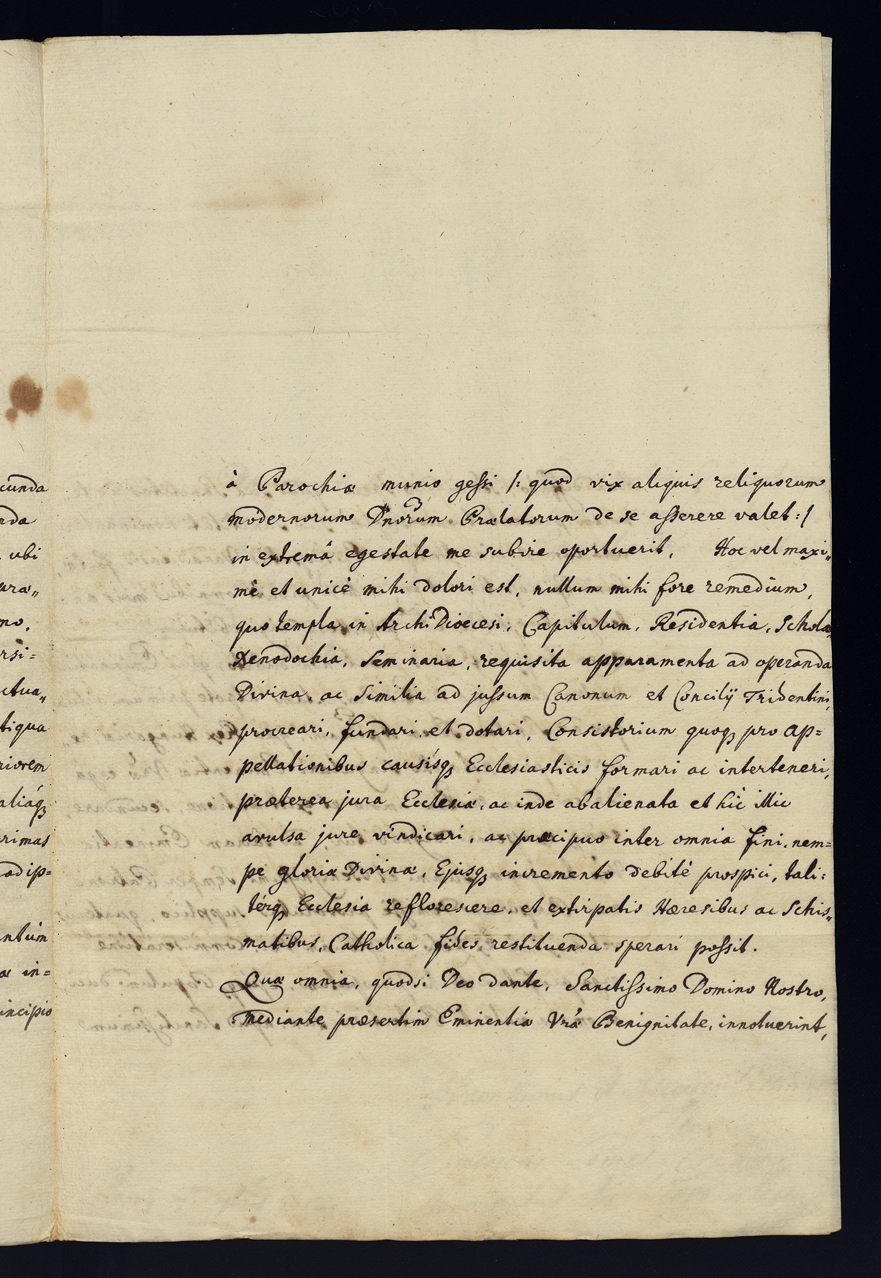 à Parochiæ munio geſsi /: quod vix aliquis reliquorum
modernorum Dnorum Prælatorum de se aſserere valet :/
in extremâ egestate me subire oportuerit. Hoc vel maxi„
mè et unicè mihi dolori est, nullum mihi fore remedium,
quo templa in Archi Dioecesi, Capitulum, Residentia, Scholæ,
Xenodochia, Seminaria, requisita apparamenta ad operanda
Divina, ac Similia ad juſsum Canonum et Concilij Tridentini,
procreari, fundari, et dotari, Consistorium quoqꝫ pro ap=
pellationibus causisqꝫ Ecclesiasticis formari ac interteneri,
præterea jura Ecclesiæ, ac inde abalienata et hîc illic
avulsa jure vindicari, ac præcipuo inter omnia fini, nem=
pe gloriæ Divinæ, Ejusqꝫ incremento debitè prospici, tali:
térqꝫ Ecclesia reflorescere, et extirpatis Hæresibus ac Schis„
matibus, Catholica fides restituenda sperari poſsit.
Quæ omnia, quodsi Deo dante, Sanctiſsimo Domino Nostro,
mediante præsertim Eminentiæ Vræ Benignitate, innotuerint,
cunda
nda
ubi
uræ„
mo,
rsi=
ctua„
tiqua
riorem
aliáqꝫ
rimas
adip=
ntùm
æ in=
incipio